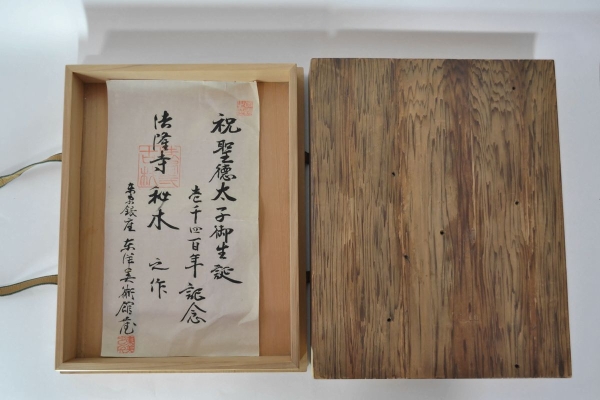 祝聖徳太子御生誕
壱千四百年記念
法隆寺 秘木 之作
東京銀座 東洋美術館蔵